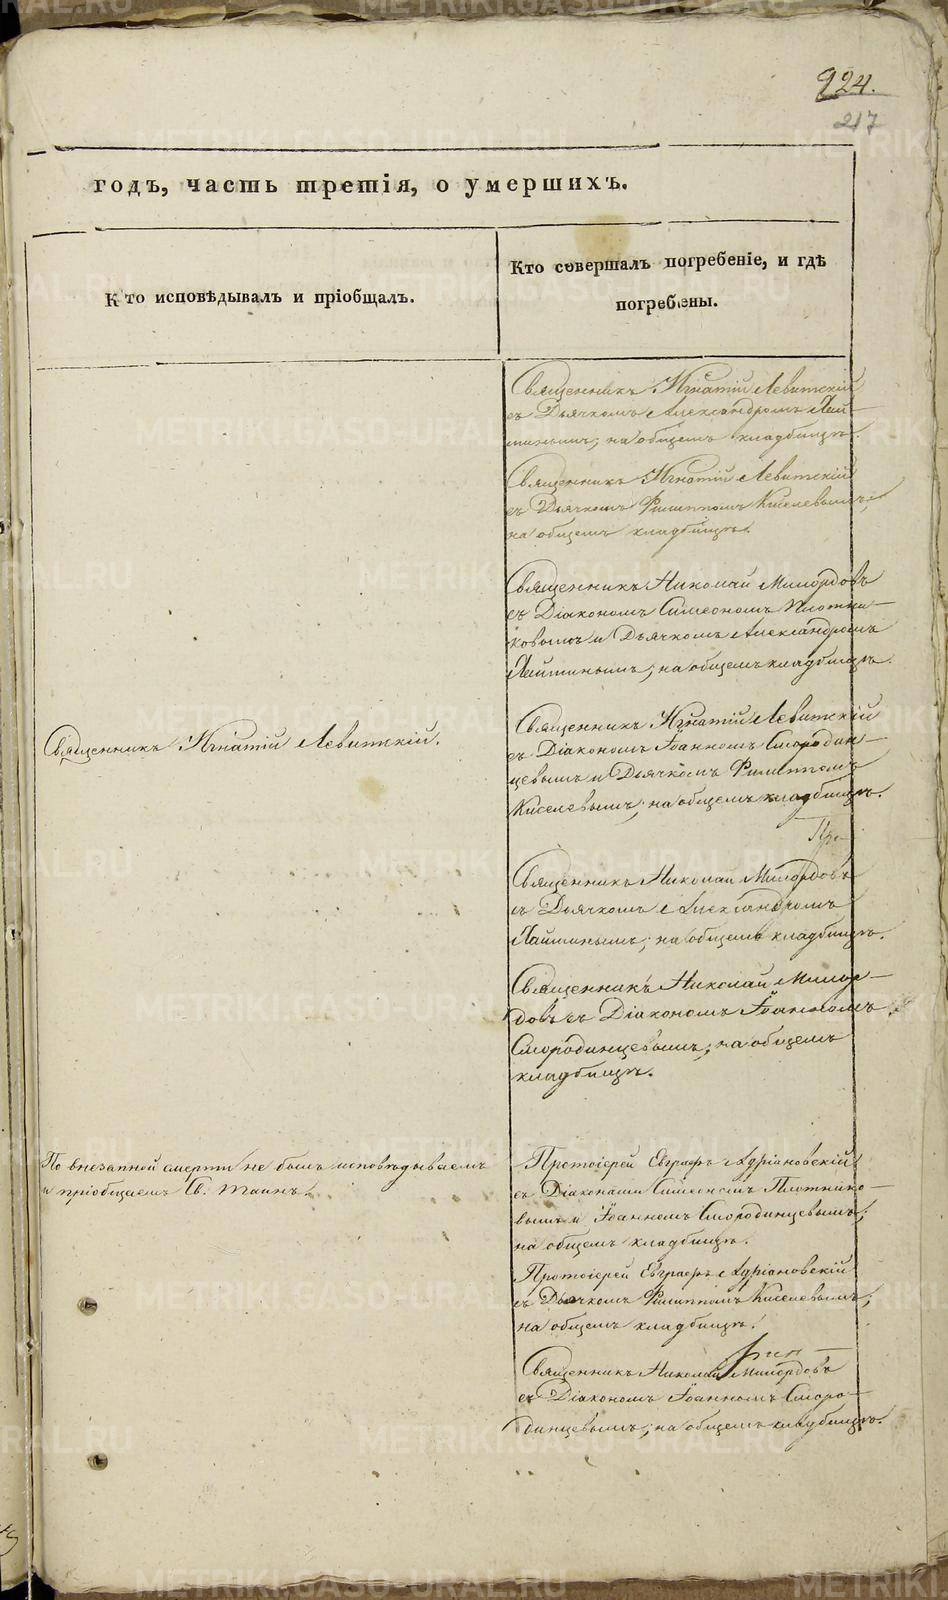 924.
217
годъ, часть третія, о умершихъ.
Кто исповѣдывалъ и пріобщалъ.
Кто совершалъ погребеніе, и гдѣ
погребены.
Священникъ Игнатій Левитскій
съ Дьячкомъ Александромъ Лай-
тинымъ; на общемъ кладбищѣ.
Священникъ Игнатій Левитскій
съ Дьячкомъ Филиппомъ Киселевымъ;
на общемъ кладбищѣ.
Священникъ Николай Милордовъ
съ Діакономъ Симеономъ Плотни-
ковымъ и Дьячкомъ Александромъ
Лайтинымъ; на общемъ кладбищѣ.
Священникъ Игнатій Левитскій.
Священникъ Игнатій Левитскій
съ Діакономъ Іоанномъ Смородин-
цевымъ и Дьячкомъ Филиппомъ
Киселевымъ; на общемъ кладбищѣ.
Про-
Священникъ Николай Милордовъ
съ Дьячкомъ Александромъ
Лайтинымъ; на общемъ кладбищѣ.
Священникъ Николай Милор-
довъ съ Діакономъ Іоанномъ
Смородинцевымъ; на общемъ
кладбищѣ.
По внезапной смерти не былъ исповѣдываемъ
и пріобщаемъ Св. Таинъ.
Протоіерей Евграфъ Адріановскій
съ Діаконами Симеономъ Плотнико-
вымъ и Іоанномъ Смородинцевымъ;
на общемъ кладбищѣ.
Протоіерей Евграфъ Адріановскій
съ Дьячкомъ Филиппомъ Киселевымъ;
на общемъ кладбищѣ.
Священникъ Николай Милордовъ
съ Діакономъ Іоанномъ Сморо-
динцевымъ; на общемъ кладбищѣ.